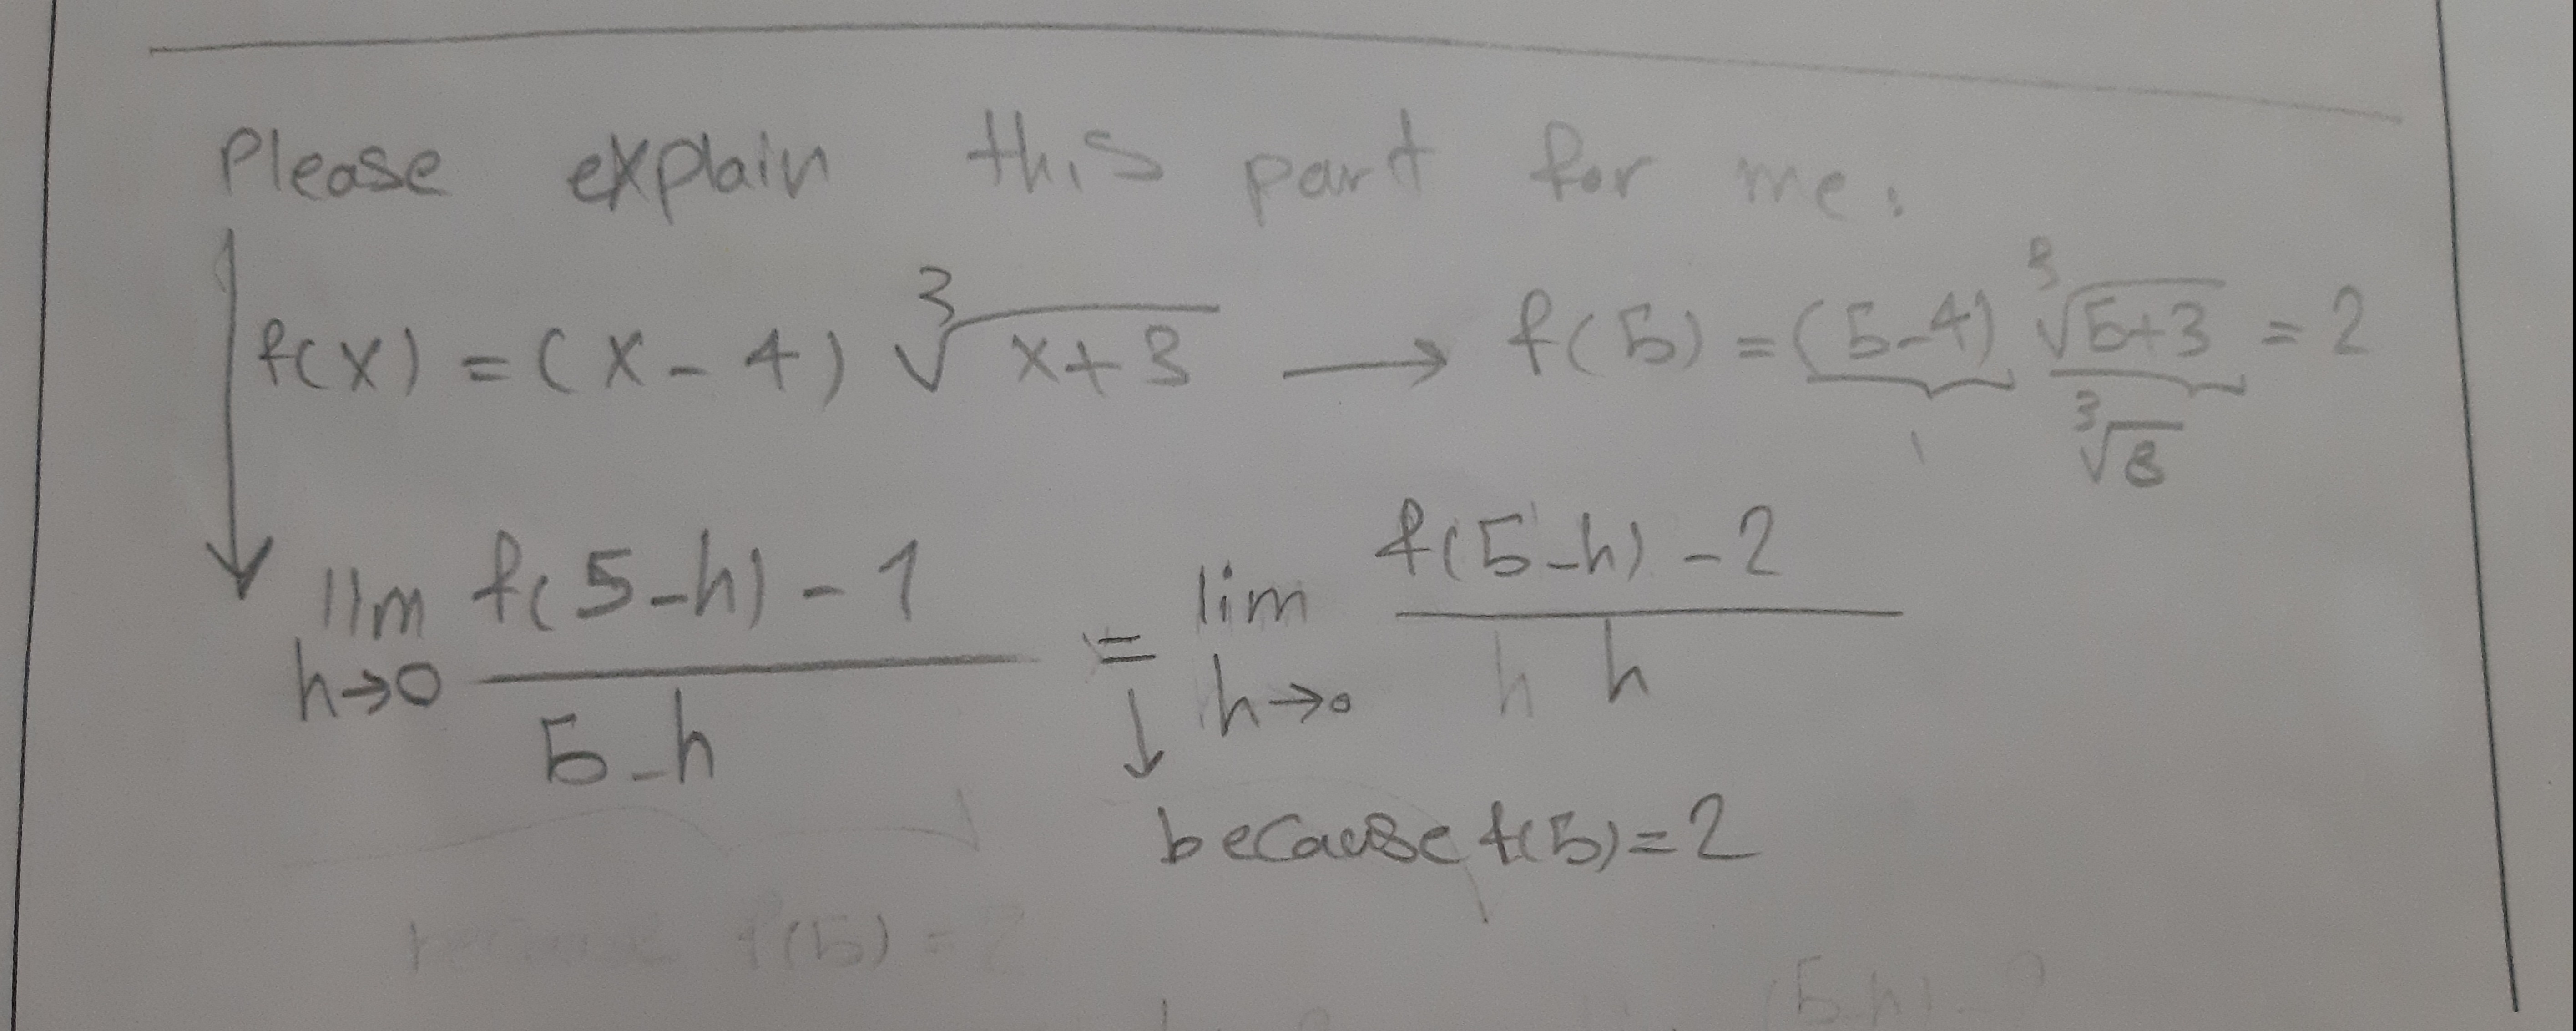 Please explain this part for me.
f(x) = (x - 4) ∛(x+3) → f(5) = (5-4) ∛(5+3) = 2
1 ∛8
lim h→0 (f(5-h) - 1)/(5-h) = lim h→0 (f(5-h) - 2)/(h h)
because f(5)=2
f(5) =